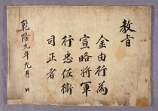 教旨
金由行爲
宣略將軍
行忠佐衛
司正者
乾隆元年九月 日